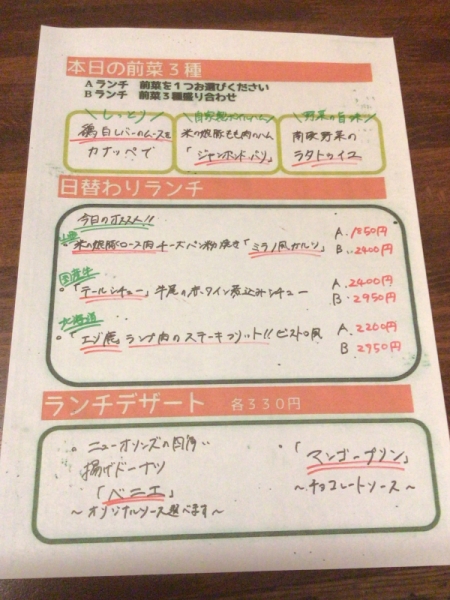 本日の前菜3種
Aランチ 前菜を1つお選びください
Bランチ 前菜3種盛り合わせ
＼しっとり／
鶏白レバーのムースを
カナッペで
米の娘豚もも肉のハム
「ジャンボンド・パリ」
＼野菜の旨味／
南欧野菜の
ラタトゥイユ
日替わりランチ
今日のオススメ!!
米の娘豚ロース肉チーズパン粉焼き「ミラノ風カツレツ」
A. 1850円
B. 2400円
国産牛
。「テールシチュー」牛尾の赤ワイン煮込みシチュー
A. 2400円
B. 2950円
北海道
。「エゾ鹿」ランプ肉のステーキフリット!!ビストロ風
A. 2200円
B 2950円
ランチデザート 各330円
。ニューオリンズの
揚げドーナツ
「ベニエ」
～オリジナルソース選べます～
。「マンゴープリン」
～チョコレートソース～